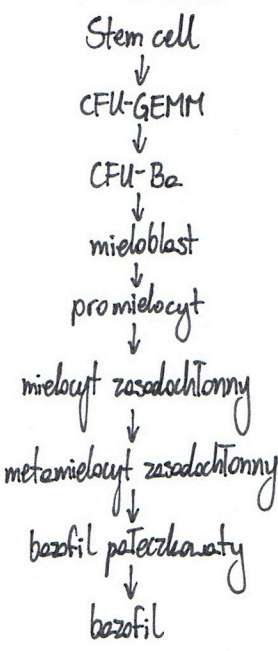 Stem cell
↓
CFU-GEMM
↓
CFU-Ba
↓
mieloblast
↓
promielocyt
↓
mielocyt zasadochłonny
↓
metamielocyt zasadochłonny
↓
bazofil pałeczkowaty
↓
bazofil